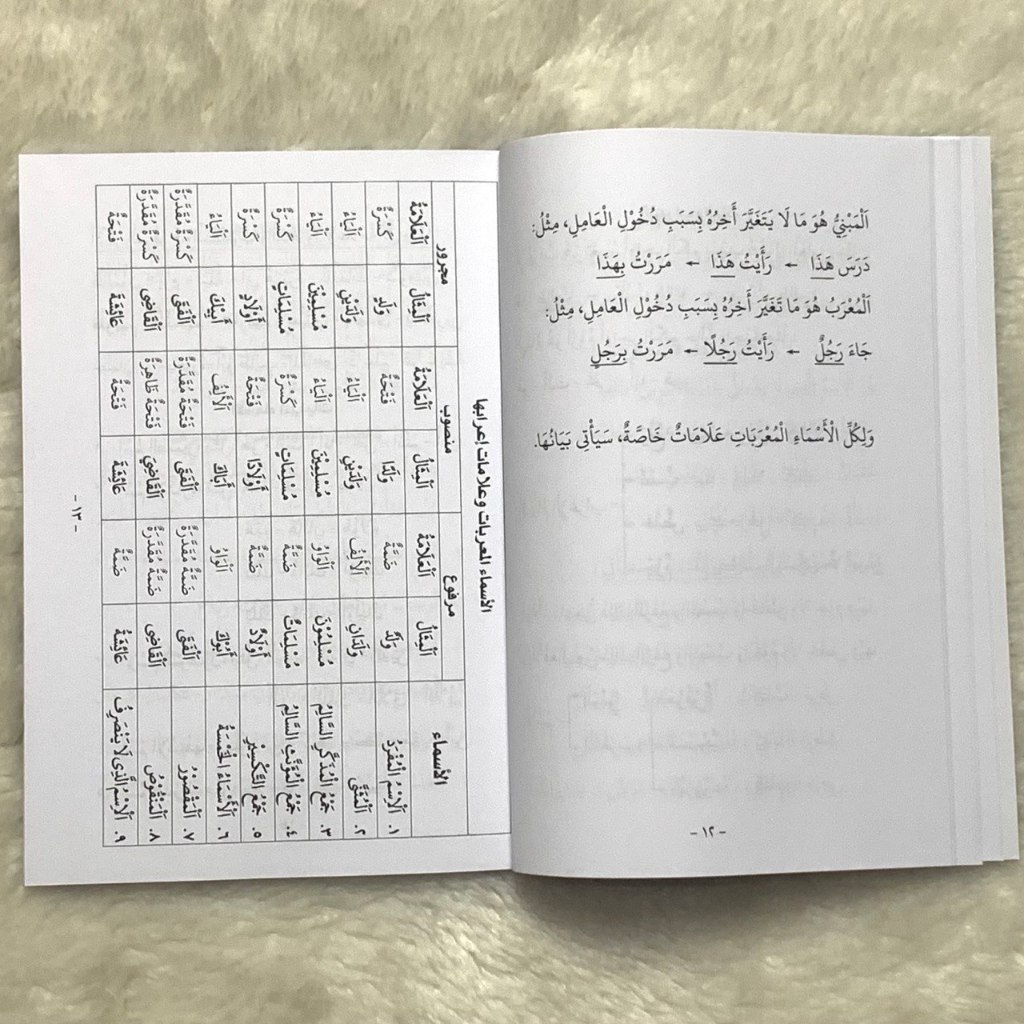 اَلْمَبْنِيُّ هُوَ مَا لَا يَتَغَيَّرَ أَخِرُهُ بِسَبَبِ دُخُوْلِ الْعَامِلِ، مِثْلُ:
دَرَسَ هَذَا ← رَأَيْتُ هَذَا ← مَرَرْتُ بِهَذَا
اَلْمُعْرَبُ هُوَ مَا تَغَيَّرَ أَخِرُهُ بِسَبَبِ دُخُوْلِ الْعَامِلِ، مِثْلُ:
جَاءَ رَجُلٌ ← رَأَيْتُ رَجُلًا ← مَرَرْتُ بِرَجُلٍ
وَلِكُلِّ الْأَسْمَاءِ الْمُعْرَبَاتِ عَلَامَاتٌ خَاصَّةٌ، سَيَأْتِى بَيَانُهَا.
- ١٢ -
الأسماء المعربات وعلامات إعرابها
الأسماء مرفوع منصوب مجرور
اَلْمِثَالُ اَلْعَلَامَةُ اَلْمِثَالُ اَلْعَلَامَةُ اَلْمِثَالُ اَلْعَلَامَةُ
١. اَلْاِسْمُ الْمُفْرَدُ وَلَدٌ ضَمَّةٌ وَلَدًا فَتْحَةٌ وَلَدٍ كَسْرَةٌ
٢. اَلْمُثَنَّى وَلَدَانِ اَلْأَلِفُ وَلَدَيْنِ اَلْيَاءُ وَلَدَيْنِ اَلْيَاءُ
٣. جَمْعُ الْمُذَكَّرِ السَّالِمُ مُسْلِمُوْنَ اَلْوَاوُ مُسْلِمِيْنَ اَلْيَاءُ مُسْلِمِيْنَ اَلْيَاءُ
٤. جَمْعُ الْمُؤَنَّثِ السَّالِمُ مُسْلِمَاتٌ ضَمَّةٌ مُسْلِمَاتٍ كَسْرَةٌ مُسْلِمَاتٍ كَسْرَةٌ
٥. جَمْعُ التَّكْسِيْرِ أَوْلَادٌ ضَمَّةٌ أَوْلَادًا فَتْحَةٌ أَوْلَادٍ كَسْرَةٌ
٦. اَلْأَسْمَاءُ الْخَمْسَةُ أَبُوْكَ اَلْوَاوُ أَبَاكَ اَلْأَلِفُ أَبِيْكَ اَلْيَاءُ
٧. اَلْمَقْصُوْرُ اَلْفَتَى ضَمَّةٌ مُقَدَّرَةٌ اَلْفَتَى فَتْحَةٌ مُقَدَّرَةٌ اَلْفَتَى كَسْرَةٌ مُقَدَّرَةٌ
٨. اَلْمَنْقُوْصُ اَلْقَاضِى ضَمَّةٌ مُقَدَّرَةٌ اَلْقَاضِيَ فَتْحَةٌ ظَاهِرَةٌ اَلْقَاضِى كَسْرَةٌ مُقَدَّرَةٌ
٩. اَلْاِسْمُ الَّذِى لَا يَنْصَرِفُ عَائِشَةُ ضَمَّةٌ عَائِشَةَ فَتْحَةٌ عَائِشَةَ فَتْحَةٌ
- ١٣ -